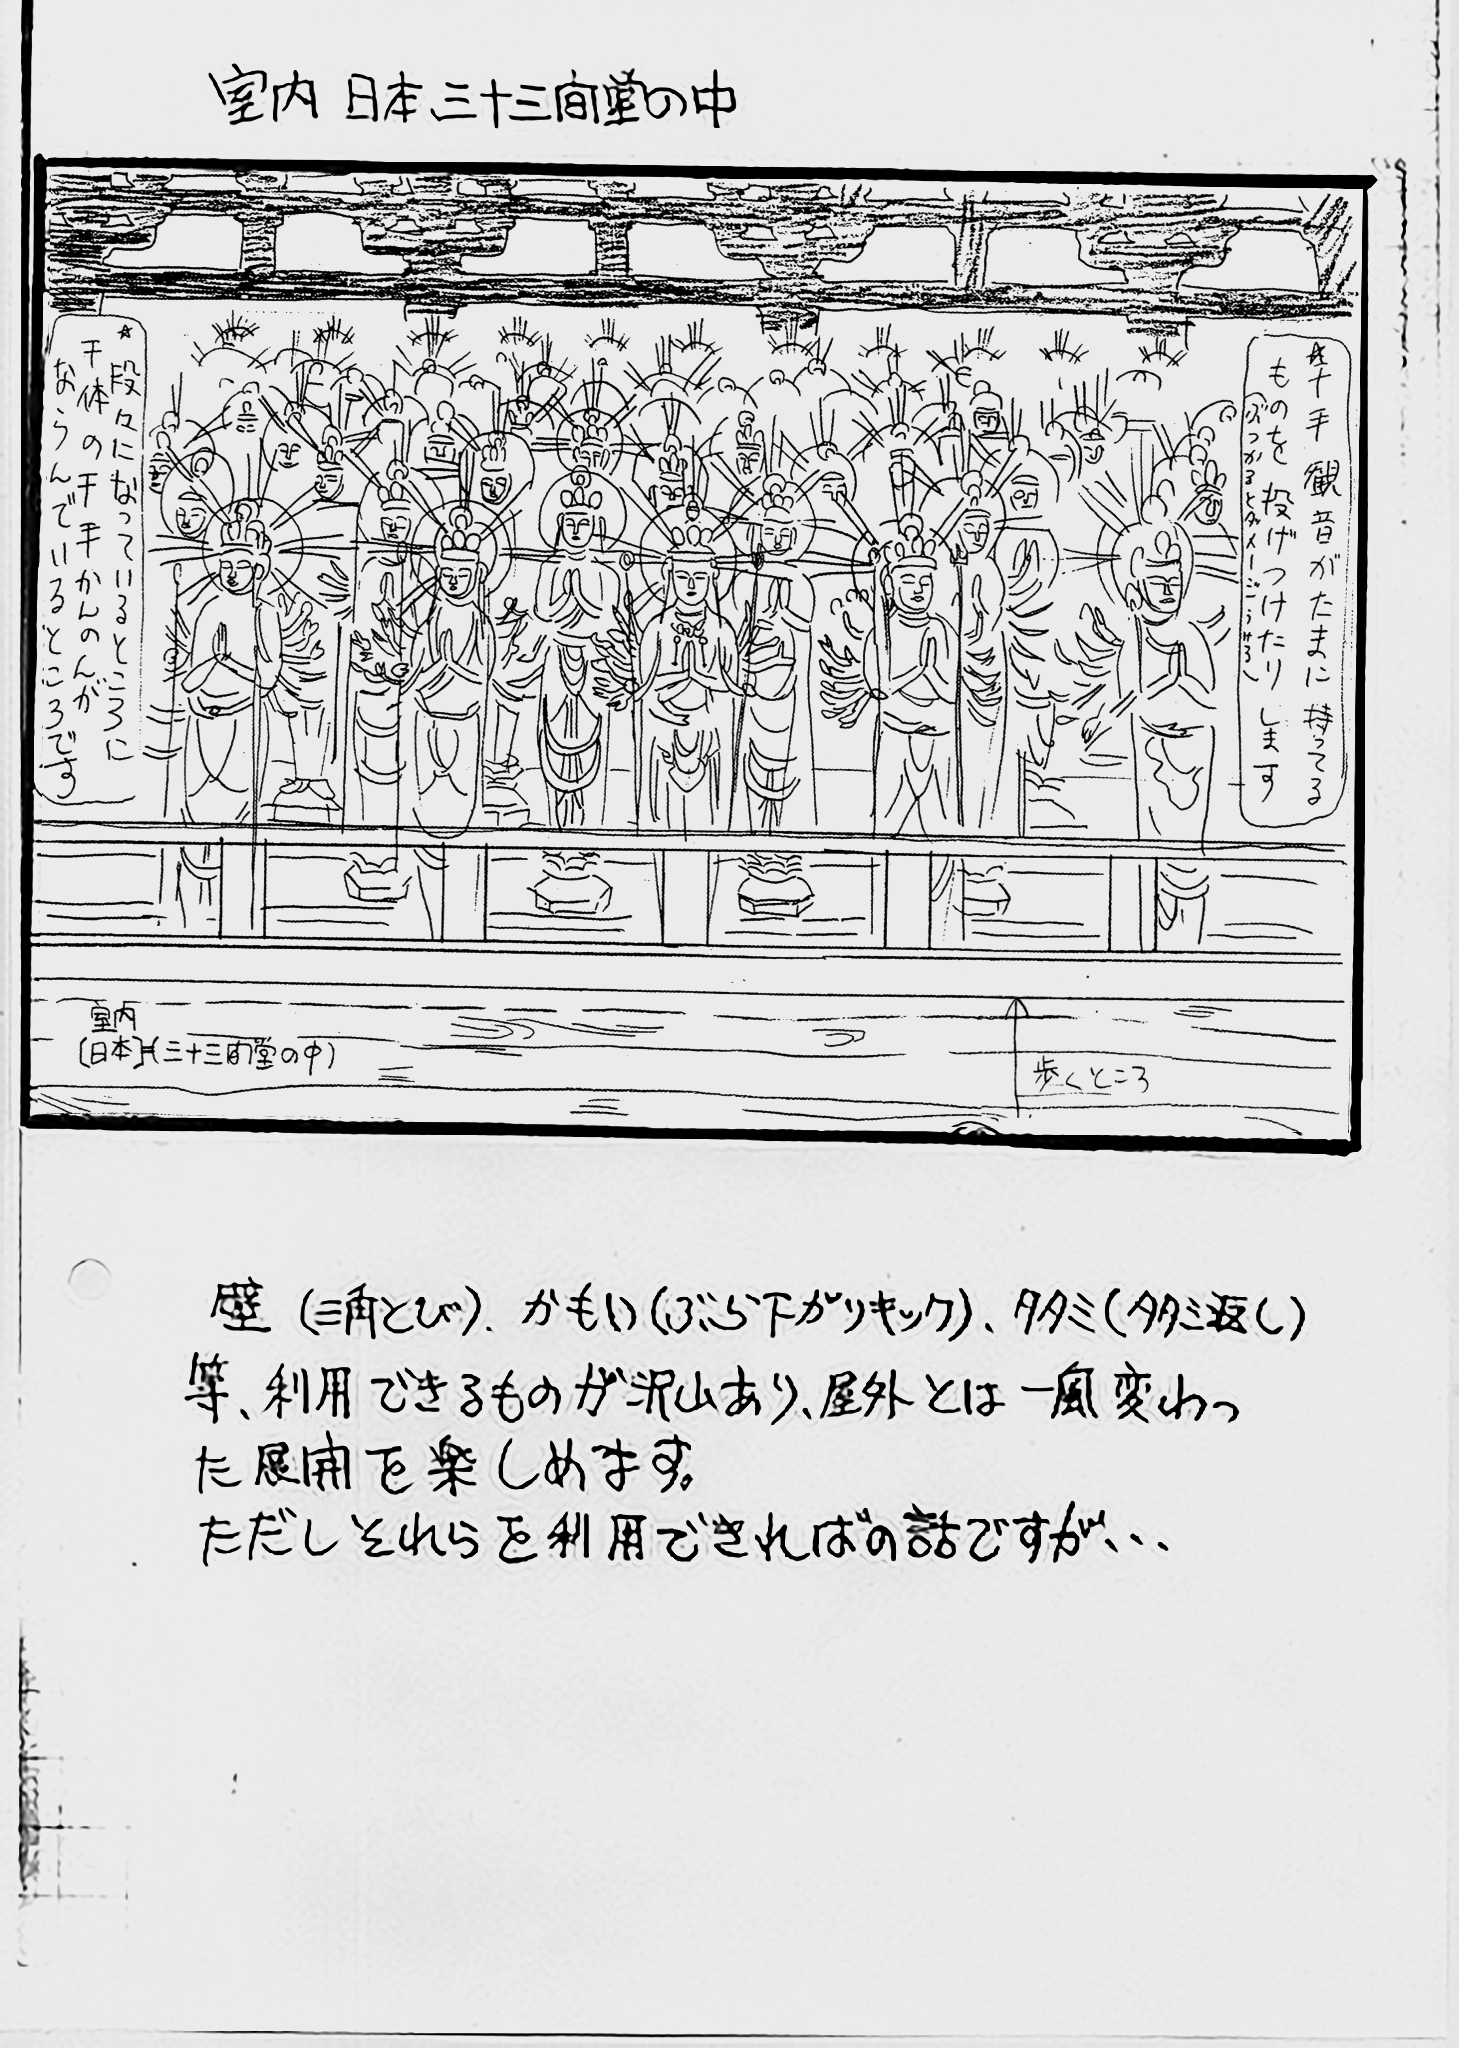 室内 日本 三十三間堂の中
☆千手観音がたまに持ってる
ものを投げつけたりします
(ぶつかるとダメージうける)
☆段々になっているところに
千体の千手かんのんが
ならんでいるところです
室内
[日本](三十三間堂の中)
歩くところ
壁(三角とび)、かもい(ぶら下がりキック)、タタミ(タタミ返し)
等、利用できるものが沢山あり、屋外とは一風変わっ
た展開を楽しめます。
ただしそれらを利用できればの話ですが、、、